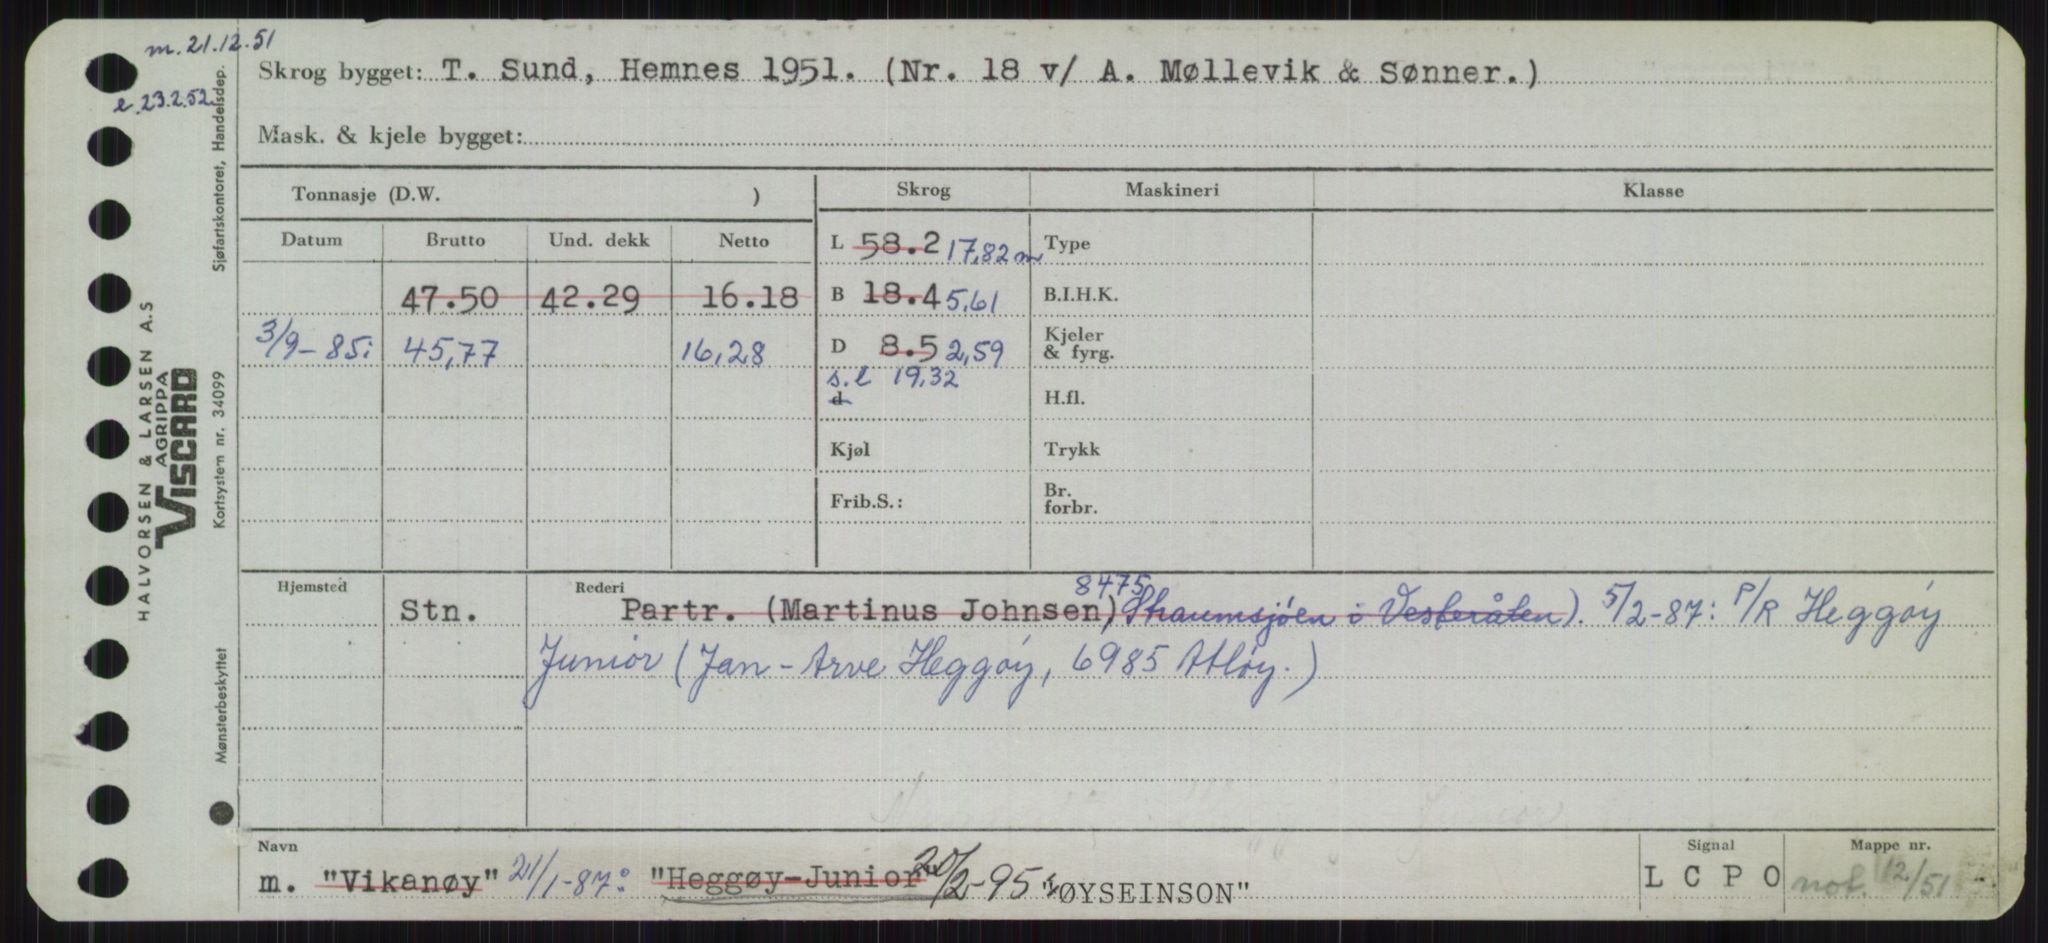 m. 21.12.51
e. 23.2.52
Skrog bygget: T. Sund, Hemnes 1951. (Nr. 18 v/ A. Møllevik & Sønner.)
Mask. & kjele bygget:
Tonnasje (D.W. )
Skrog
Maskineri
Klasse
Datum Brutto Und. dekk Netto
L 58.2 17,82 m
Type
47.50 42.29 16.18
B 18.4 5,61
B.I.H.K.
3/9-85: 45,77 16,28
D 8.5 2,59
Kjeler & fyrg.
s.l 19,32
d
H.fl.
Kjøl
Trykk
Frib.S.:
Br. forbr.
Hjemsted
Rederi
8475
Stn. Partr. (Martinus Johnsen, Straumsjøen i Vesterålen). 5/2-87: P/R Heggøy
Junior (Jan-Arve Heggøy, 6985 Atløy.)
Navn
Signal
Mappe nr.
m. "Vikanøy" 21/1-87: "Heggøy-Junior" 20/2-95: "ØYSEINSON"
L C P O
not. 12/51
HALVORSEN & LARSEN A.S
AGRIPPA
VISCARD
Sjøfartskontoret, Handelsdep.
Kortsystem nr. 34099
Mønsterbeskyttet